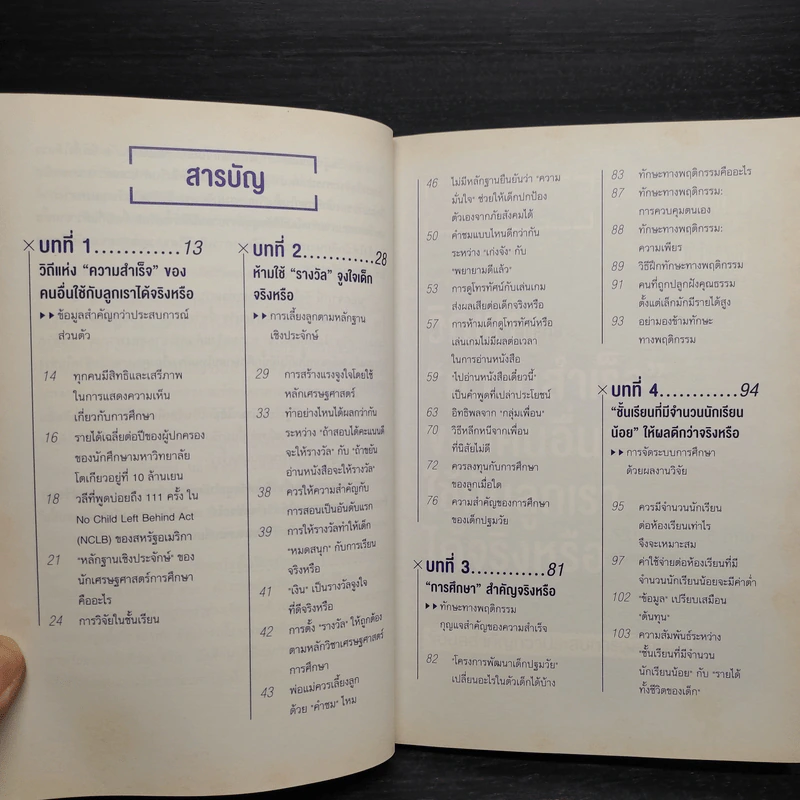 สารบัญ
บทที่ 1............13
วิถีแห่ง "ความสำเร็จ" ของ
คนอื่นใช้กับลูกเราได้จริงหรือ
ข้อมูลสำคัญกว่าประสบการณ์
ส่วนตัว
14 ทุกคนมีสิทธิและเสรีภาพ
ในการแสดงความเห็น
เกี่ยวกับการศึกษา
16 รายได้เฉลี่ยต่อปีของผู้ปกครอง
ของนักศึกษามหาวิทยาลัย
โตเกียวอยู่ที่ 10 ล้านเยน
18 วลีที่พูดบ่อยถึง 111 ครั้ง ใน
No Child Left Behind Act
(NCLB) ของสหรัฐอเมริกา
21 "หลักฐานเชิงประจักษ์" ของ
นักเศรษฐศาสตร์การศึกษา
คืออะไร
24 การวิจัยในชั้นเรียน
บทที่ 2............28
ห้ามใช้ "รางวัล" จูงใจเด็ก
จริงหรือ
การเลี้ยงลูกตามหลักฐาน
เชิงประจักษ์
29 การสร้างแรงจูงใจโดยใช้
หลักเศรษฐศาสตร์
33 ทำอย่างไหนได้ผลกว่ากัน
ระหว่าง "ถ้าสอบได้คะแนนดี
จะให้รางวัล" กับ "ถ้าขยัน
อ่านหนังสือจะให้รางวัล"
38 ควรให้ความสำคัญกับ
การสอนเป็นอันดับแรก
39 การให้รางวัลทำให้เด็ก
"หมดสนุก" กับการเรียน
จริงหรือ
41 "เงิน" เป็นรางวัลจูงใจ
ที่ดีจริงหรือ
42 การตั้ง "รางวัล" ให้ถูกต้อง
ตามหลักวิชาเศรษฐศาสตร์
การศึกษา
43 พ่อแม่ควรเลี้ยงลูก
ด้วย "คำชม" ไหม
46 ไม่มีหลักฐานยืนยันว่า "ความ
มั่นใจ" ช่วยให้เด็กปกป้อง
ตัวเองจากภัยสังคมได้
50 คำชมแบบไหนดีกว่ากัน
ระหว่าง "เก่งจัง" กับ
"พยายามดีแล้ว"
53 การดูโทรทัศน์กับเล่นเกม
ส่งผลเสียต่อเด็กจริงหรือ
57 การห้ามเด็กดูโทรทัศน์หรือ
เล่นเกมไม่มีผลต่อเวลา
ในการอ่านหนังสือ
59 "ไปอ่านหนังสือเดี๋ยวนี้"
เป็นคำพูดที่เปล่าประโยชน์
63 อิทธิพลจาก "กลุ่มเพื่อน"
70 วิธีหลีกหนีจากเพื่อน
ที่นิสัยไม่ดี
72 ควรลงทุนกับการศึกษา
ของลูกเมื่อใด
76 ความสำคัญของการศึกษา
ของเด็กปฐมวัย
บทที่ 3............81
"การศึกษา" สำคัญจริงหรือ
ทักษะทางพฤติกรรม
กุญแจสำคัญของความสำเร็จ
82 "โครงการพัฒนาเด็กปฐมวัย"
เปลี่ยนอะไรในตัวเด็กได้บ้าง
83 ทักษะทางพฤติกรรมคืออะไร
87 ทักษะทางพฤติกรรม:
การควบคุมตนเอง
88 ทักษะทางพฤติกรรม:
ความเพียร
89 วิธีฝึกทักษะทางพฤติกรรม
91 คนที่ถูกปลูกฝังคุณธรรม
ตั้งแต่เล็กมักมีรายได้สูง
93 อย่ามองข้ามทักษะ
ทางพฤติกรรม
บทที่ 4............94
"ชั้นเรียนที่มีจำนวนนักเรียน
น้อย" ให้ผลดีกว่าจริงหรือ
การจัดระบบการศึกษา
ด้วยผลงานวิจัย
95 ควรมีจำนวนนักเรียน
ต่อห้องเรียนเท่าไร
จึงจะเหมาะสม
97 ค่าใช้จ่ายต่อห้องเรียนที่มี
จำนวนนักเรียนน้อยจะมีค่าต่ำ
102 "ข้อมูล" เปรียบเสมือน
"ต้นทุน"
103 ความสัมพันธ์ระหว่าง
"ชั้นเรียนที่มีจำนวน
นักเรียนน้อย" กับ "รายได้
ทั้งชีวิตของเด็ก"